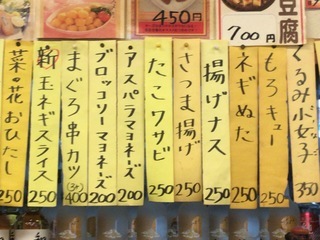 450円
700円
豆腐
くるみ小女子
350
もろキュー
250
ネギぬた
250
揚げナス
250
さつま揚げ
250
たこワサビ
250
アスパラマヨネーズ
200
ブロッコリーマヨネーズ
200
まぐろ串カツ
400
新玉ネギスライス
250
菜の花おひたし
250